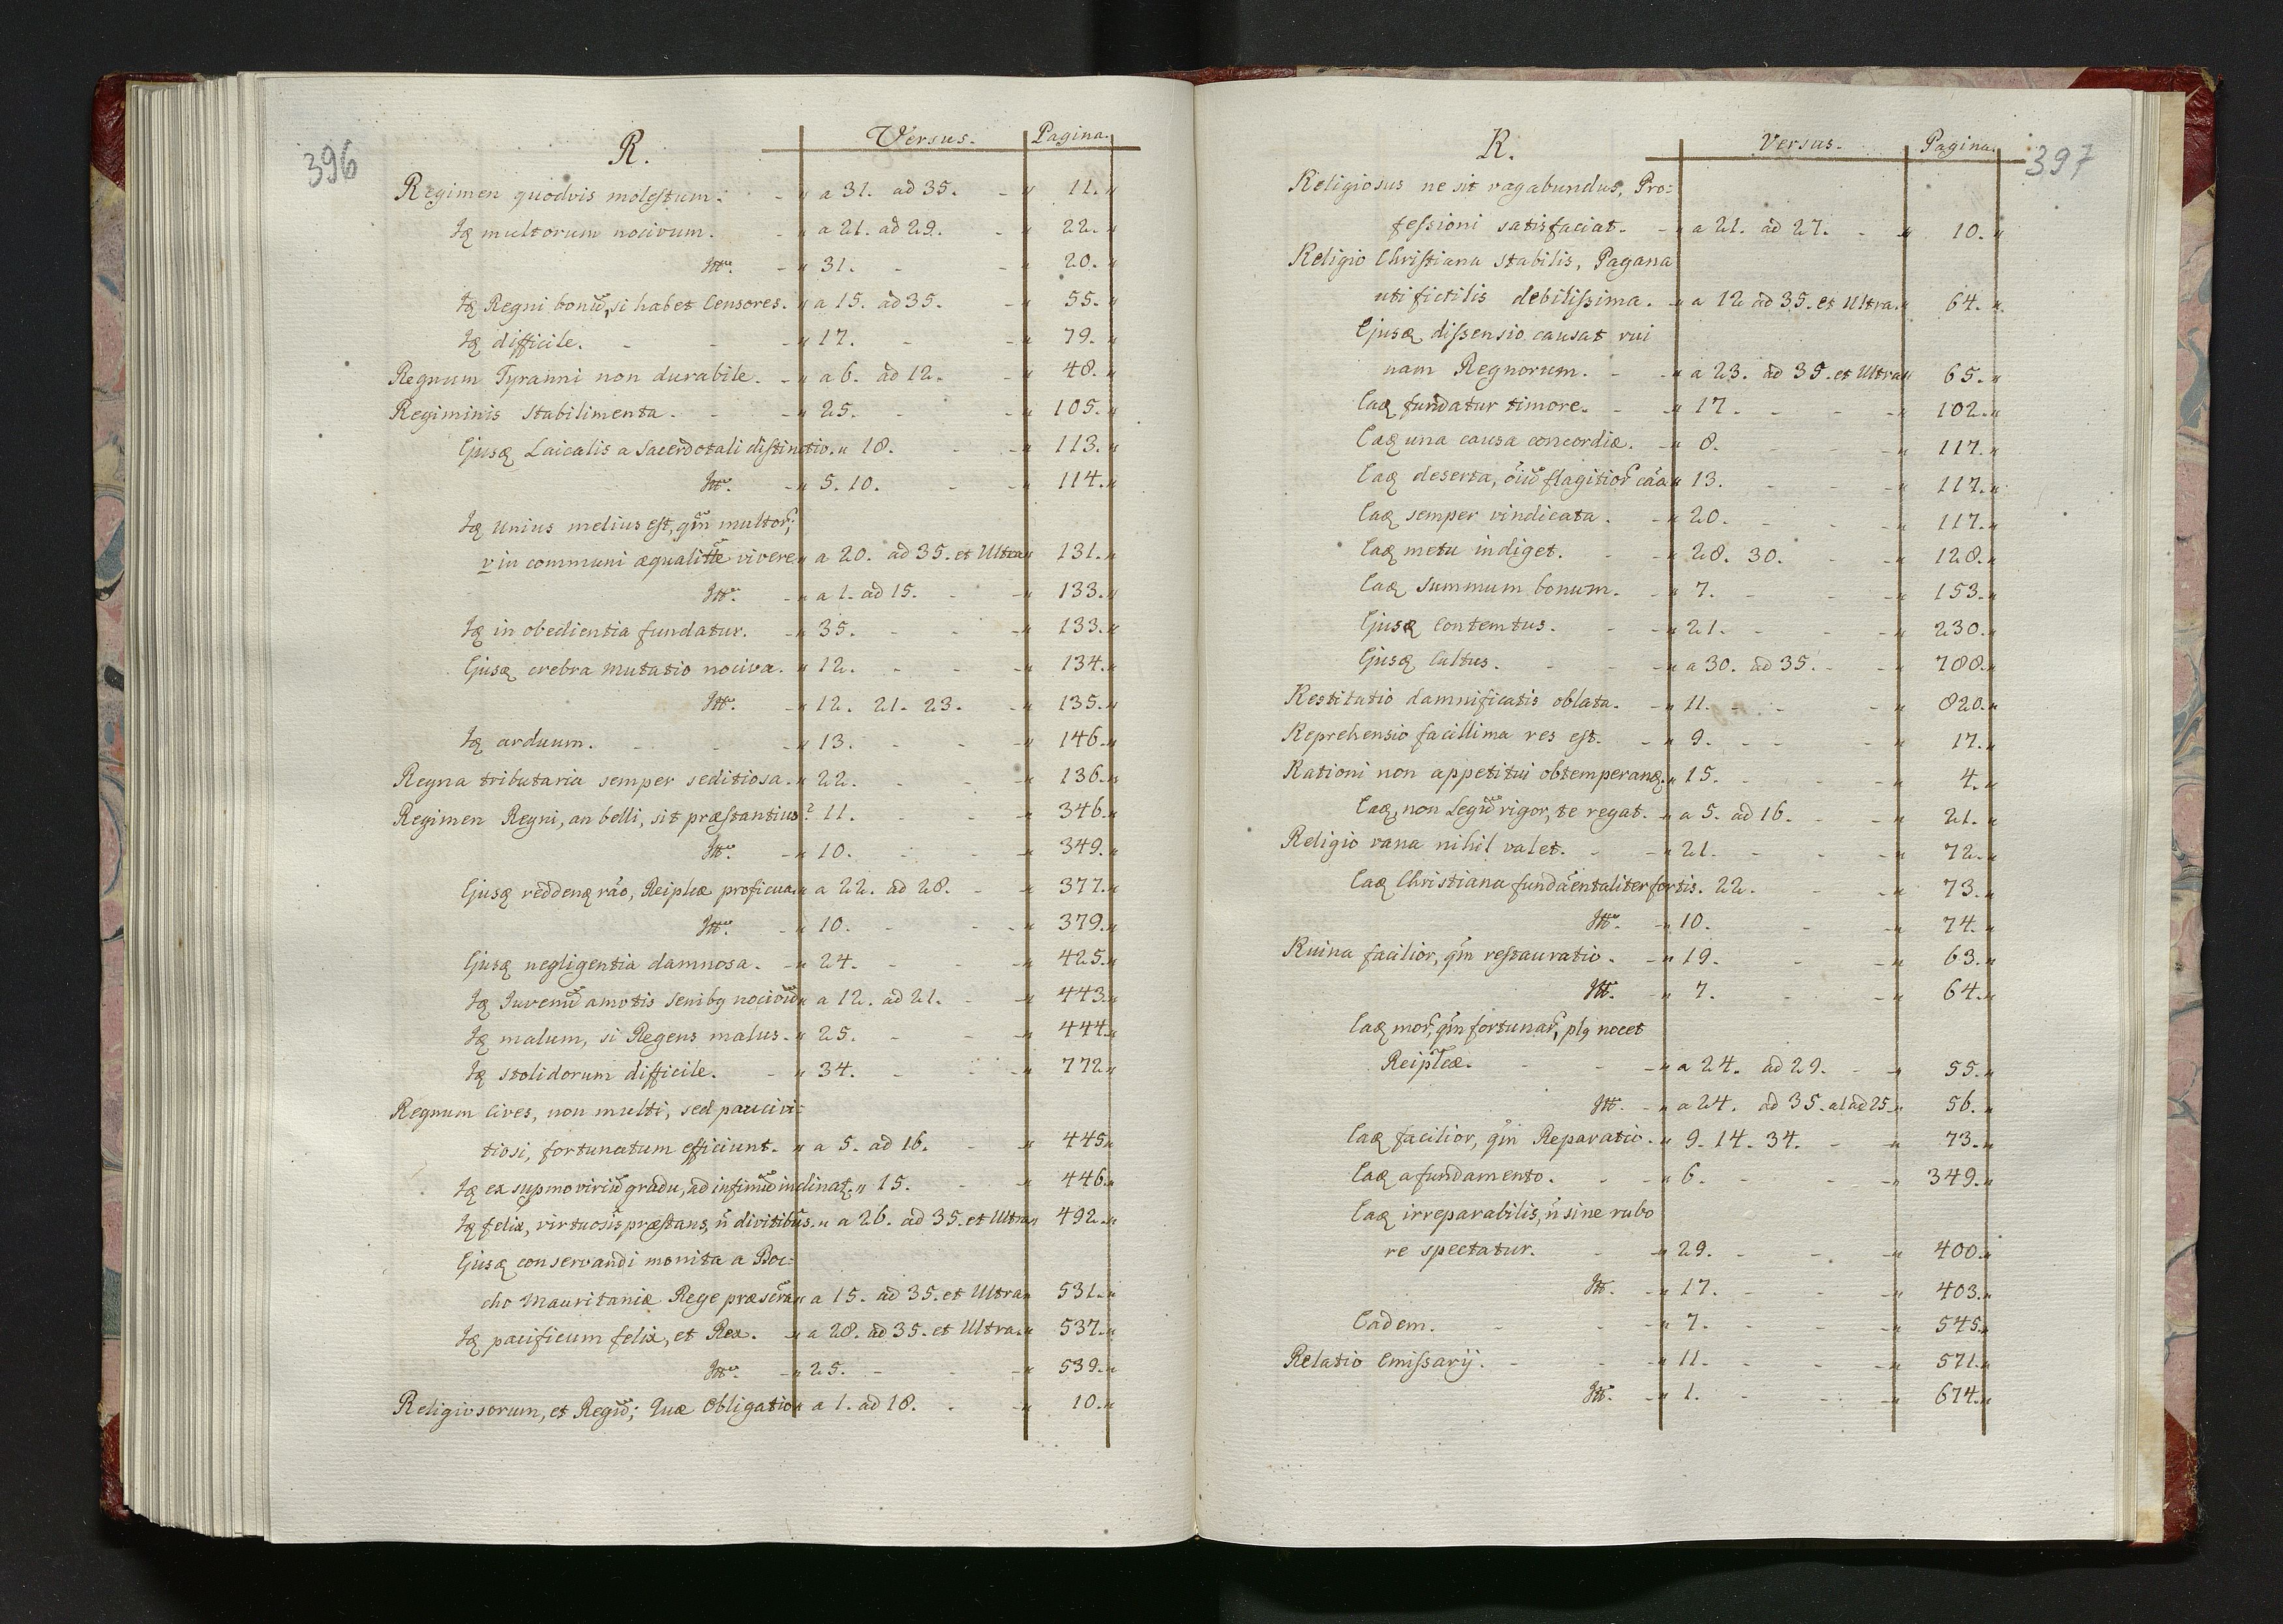 396
R. Versus. Pagina.
Regimen quodvis molestum. - „ a 31. ad 35. - „ 11. „
Idq multorum nocivum. - „ a 21. ad 29. - „ 22. „
Itt. - „ 31. - - „ 20. „
Idq Regni bonũ, si habet Censores. „ a 15. ad 35. - „ 55. „
Idq difficile. - - - „ 17. - - „ 79. „
Regnum Tyranni non durabile. - „ a 6. ad 12. - „ 48. „
Regiminis stabilimenta. - - „ 25. - - „ 105. „
Ejusq Laicalis a Sacerdotali distinctio. „ 18. - - „ 113. „
Itt. - „ 5. 10. - - „ 114. „
Idq Unius melius est, qm̃ multor;
v in communi æqualitte vivere „ a 20. ad 35. et Ultra „ 131. „
Itt. - „ a 1. ad 15. - - „ 133. „
Idq in obedientia fundatur. - „ 35. - - - „ 133. „
Ejusq crebra mutatio nociva. „ 12. - - - „ 134. „
Itt. - „ 12. 21. 23. - „ 135. „
Idq arduum. - - - „ 13. - - - „ 146. „
Regna tributaria semper seditiosa. „ 22. - - - „ 136. „
Regimen Regni, an belli, sit præstantius? 11. - - - „ 346. „
Itt. - „ 10. - - - „ 349. „
Ejusq reddenq rão, Reiplcæ proficua. „ a 22. ad 28. - - „ 377. „
Itt. - „ 10. - - - „ 379. „
Ejusq negligentia damnosa. - „ 24. - - - „ 425. „
Idq Juvenũ amotis senibq nocivũ „ a 12. ad 21. - - „ 443. „
Idq malum, si Regens malus. „ 25. - - - „ 444. „
Idq stolidorum difficile. - „ 34. - - - „ 772. „
Regnum Cives, non multi, sed pauci vi=
tiosi, fortunatum efficiunt. „ a 5. ad 16. - - „ 445. „
Idq ex supmo viriũ gradu, ad infimũ inclinat. „ 15. - - „ 446. „
Idq felix, virtuosis præstans, ñ divitibus. „ a 26. ad 35. et Ultra „ 492. „
Ejusq conservandi monita a Boc=
cho Mauritaniæ Rege præscra „ a 15. ad 35. et Ultra „ 531. „
Idq pacificum felix, et Rex. - „ a 28. ad 35. et Ultra. „ 537. „
Itt. - „ 25. - - - „ 539. „
Religiosorum, et Regũ; Quæ Obligatio „ a 1. ad 18. - - „ 10. „
397
R. Versus. Pagina.
Religiosus ne sit vagabundus, Pro=
fessioni satisfaciat. - „ a 21. ad 27. - „ 10. „
Religio Christiana stabilis, Pagana
uti fictilis debilissima. „ a 12 ad 35. et Ultra. „ 64. „
Ejusq dissensio causat rui
nam Regnorum. - „ a 23. ad 35. et Ultra „ 65. „
Eaq fundatur timore. - „ 17. - - - „ 102. „
Eaq una causa concordiæ. - „ 8. - - - „ 117. „
Eaq deserta, õiũ flagitior cãa „ 13. - - - „ 117. „
Eaq semper vindicata. - „ 20. - - - „ 117. „
Eaq metu indiget. - „ 28. 30. - - „ 128. „
Eaq summum bonum. - „ 7. - - - „ 153. „
Ejusq Contemtus. - „ 21. - - - „ 230. „
Ejusq Cultus. - - „ a 30. ad 35. - - „ 788. „
Restitutio damnificatis oblata. „ 11. - - - „ 820. „
Reprehensio facillima res est. - „ 9. - - - „ 17. „
Rationi non appetitui obtemperanq. „ 15. - - - „ 4. „
Eaq, non Legũ rigor, te regat. „ a 5. ad 16. - - „ 21. „
Religio vana nihil valet. - - „ 21. - - - „ 72. „
Eaq Christiana fundãentaliter fortis. 22. - - „ 73. „
Itt. - „ 10. - - „ 74. „
Ruina facilior, qm̃ restauratio. - „ 19. - - „ 63. „
Itt. - „ 7. - - „ 64. „
Eaq mor, qm̃ fortunar, plq nocet
Reiplcæ. - - - „ a 24. ad 29. - „ 55. „
Itt. - „ a 24. ad 35. a 1 ad 25 „ 56. „
Eaq facilior, qm̃ Reparatio. „ 9. 14. 34. - - „ 73. „
Eaq a fundamento. - - „ 6. - - - „ 349. „
Eaq irreparabilis, ñ sine rubo
re spectatur. - - „ 29. - - - „ 400. „
Itt. - „ 17. - - - „ 403. „
Eadem. - - - „ 7. - - - „ 545. „
Relatio Emissarij. - - - „ 11. - - - „ 571. „
Itt. - „ 1. - - - „ 674. „